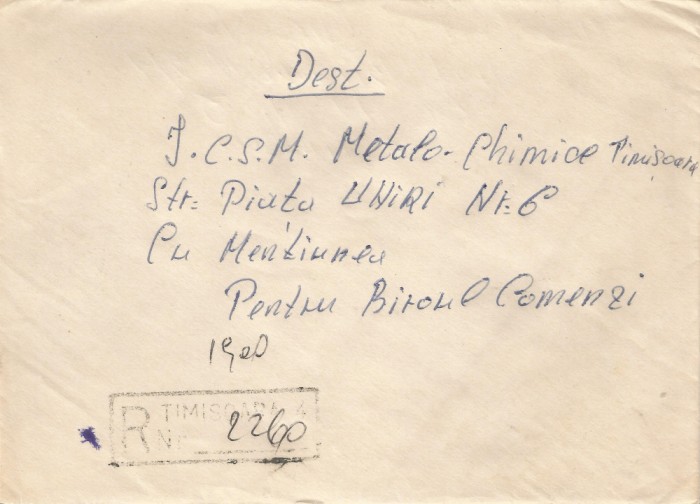 Dest.
I.C.S.M. Metalo-Chimice Timișoara
Str: Piata UNIRI Nr. 6
Cu Menţiunea
Pentru Biroul Comenzi
R TIMISOARA 4
Nr. 2260